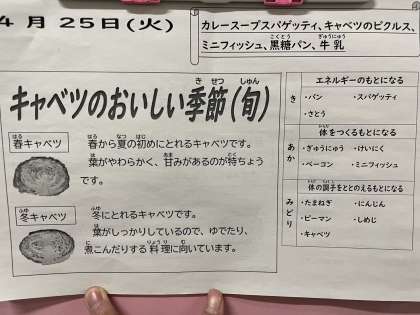 4月25日(火)
カレースープスパゲッティ、キャベツのピクルス、
ミニフィッシュ、黒糖パン、牛乳
こくとう ぎゅうにゅう
キャベツのおいしい季節(旬)
きせつ しゅん
春キャベツ
はる
春から夏の初めにとれるキャベツです。
はる なつ はじ
葉がやわらかく、甘みがあるのが特ちょう
は あま とく
です。
冬キャベツ
ふゆ
冬にとれるキャベツです。
ふゆ
葉がしっかりしているので、ゆでたり、
は
煮こんだりする料理に向いています。
に りょうり む
き
エネルギーのもとになる
・パン ・スパゲッティ
・さとう
あか
体をつくるもとになる
・ぎゅうにゅう ・けいにく
・ベーコン ・ミニフィッシュ
みどり
体の調子をととのえるもとになる
・たまねぎ ・にんじん
・ピーマン ・しめじ
・キャベツ